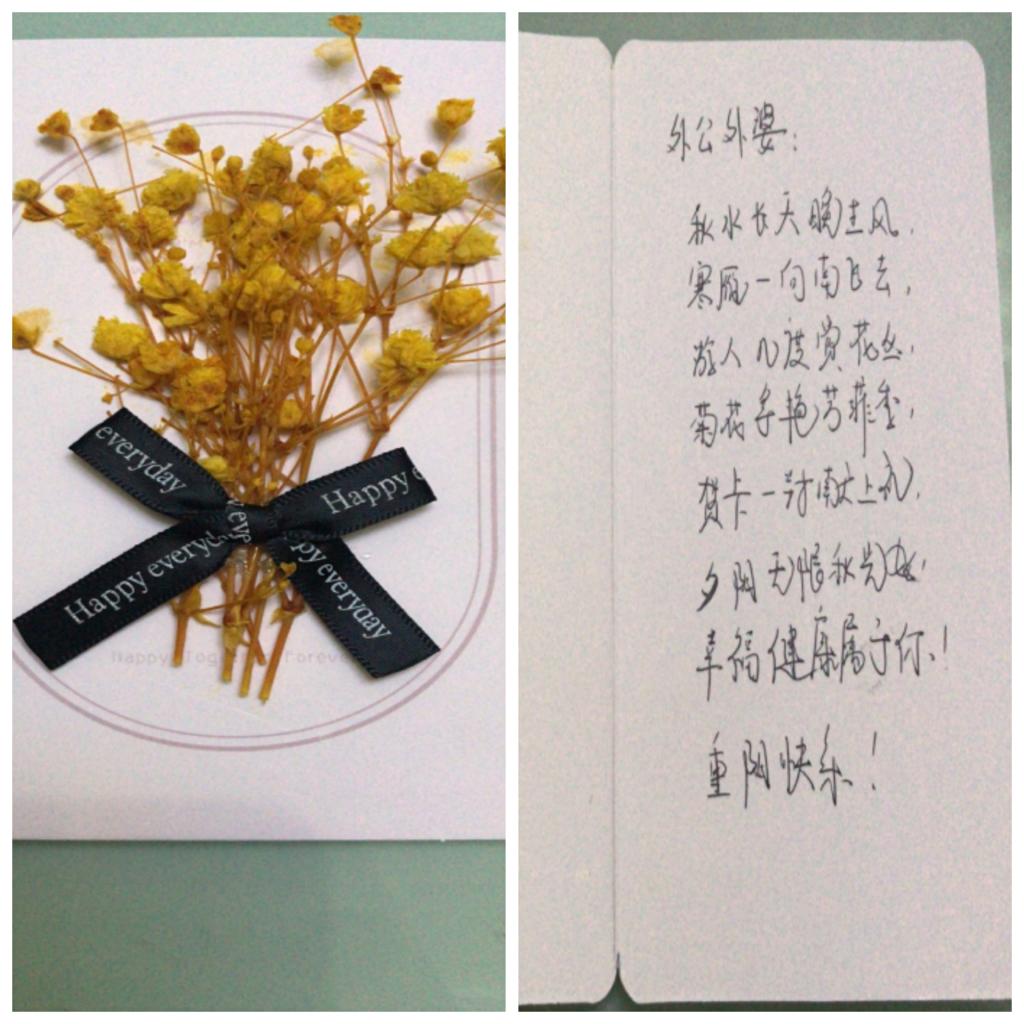 everyday
Happy e
Happy everyd
eve
py everyday
Happy Together Forever
外公外婆：
秋水长天晚生风，
寒雁一向南飞去，
游人几度赏花丛，
菊花争艳芳菲季，
贺卡一封献上礼，
夕阳无惧秋光
幸福健康属于你！
重阳快乐！